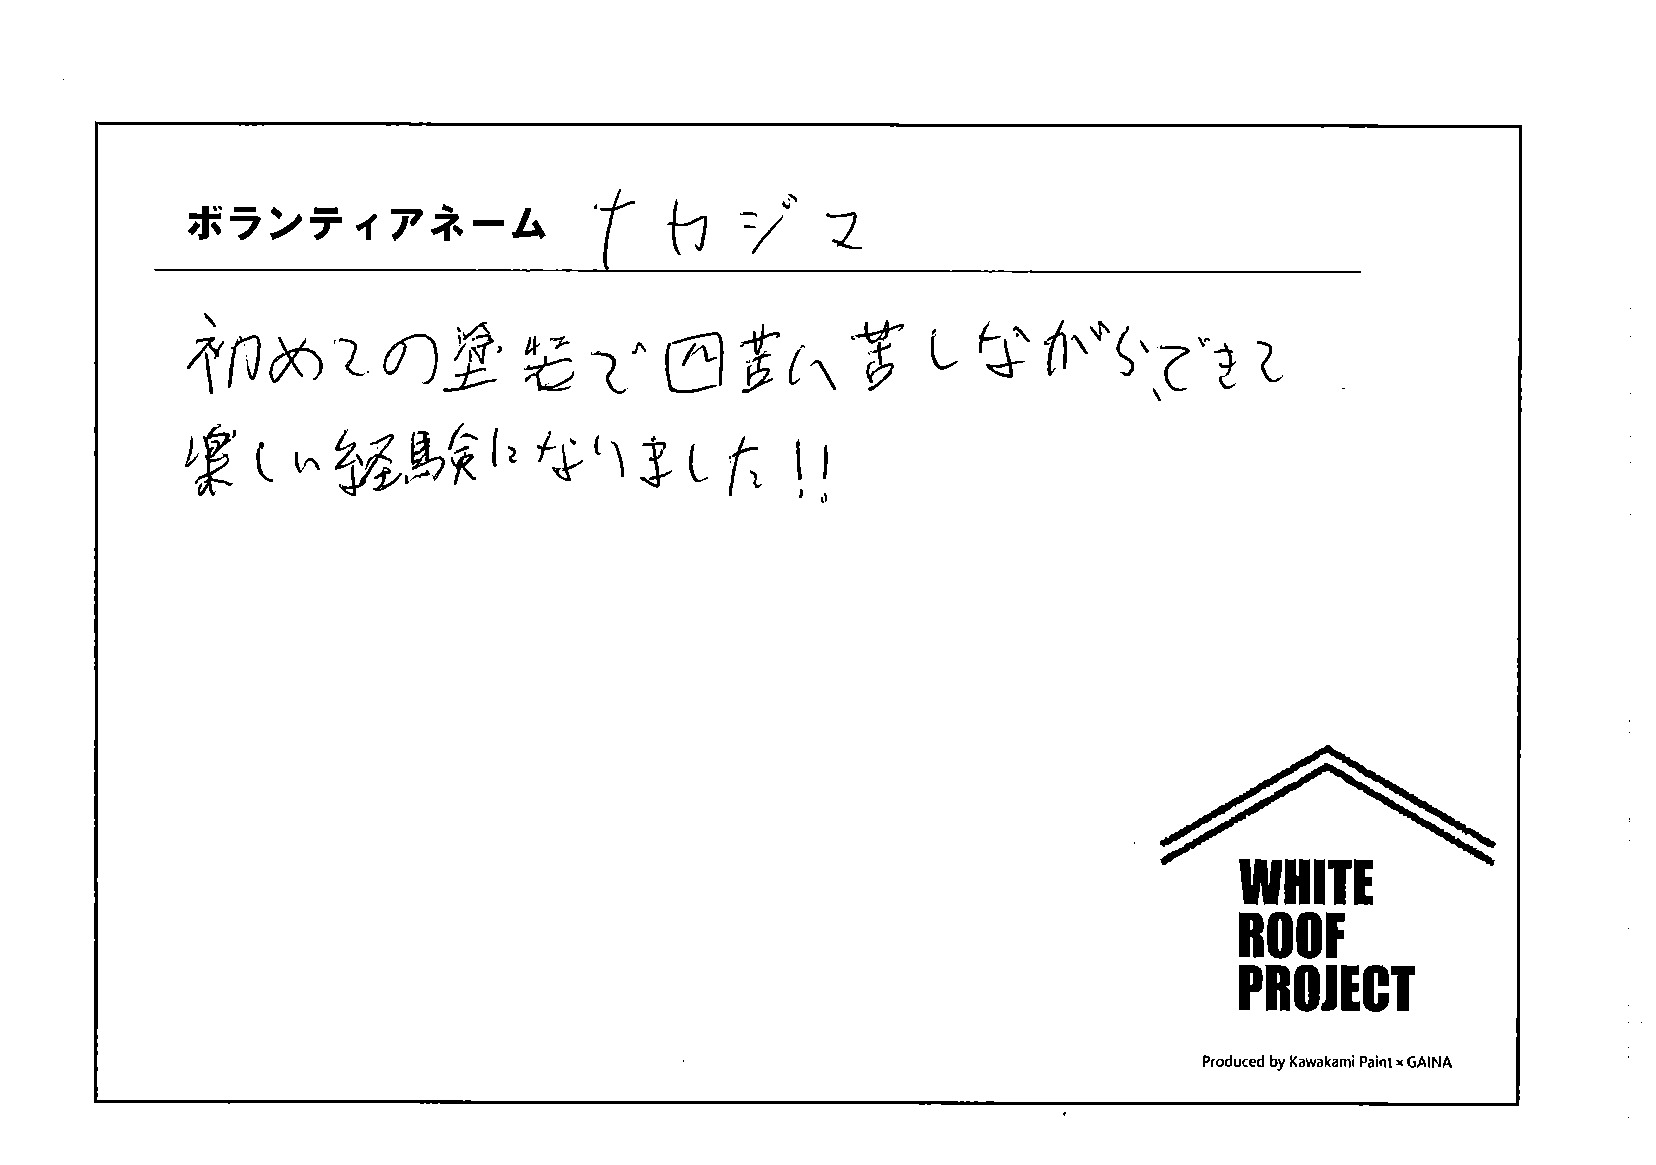 ボランティアネーム ナカジマ
初めての塗装で四苦八苦しながら、できて
楽しい経験になりました!!
WHITE
ROOF
PROJECT
Produced by Kawakami Paint × GAINA